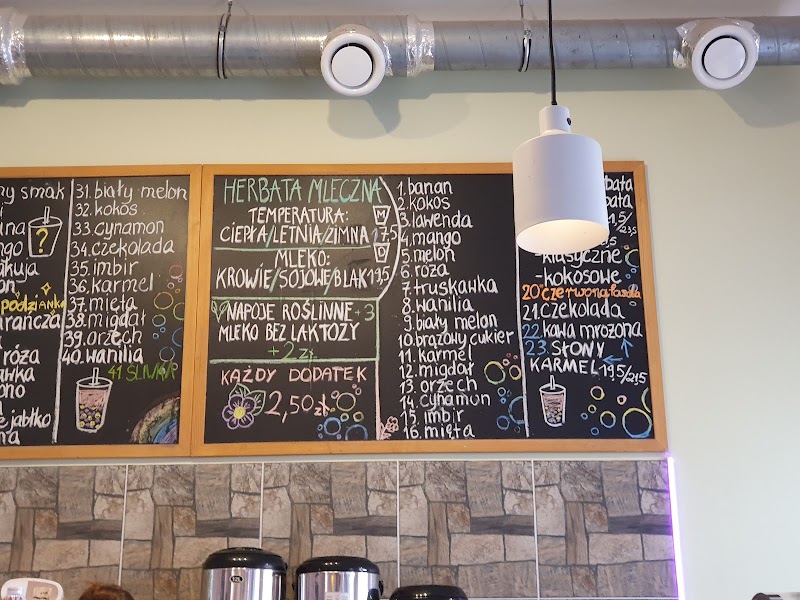 smak
ngo
?
akuja
podzianka
arańcza
róża
wka
ono
jabłko
31. biały melon
32. kokos
33. cynamon
34. czekolada
35. imbir
36. karmel
37. mięta
38. migdał
39. orzech
40. wanilia
41 ŚLIWKA
HERBATA MLECZNA
TEMPERATURA:
CIEPŁA/LETNIA/ZIMNA
M
17,5
MLEKO:
KROWIE/SOJOWE/BLAK
D
19,5
NAPOJE ROŚLINNE +3
MLEKO BEZ LAKTOZY
+2 zł
KAŻDY DODATEK
2,50 zł
1. banan
2. kokos
3. lawenda
4. mango
5. melon
6. róża
7. truskawka
8. wanilia
9. biały melon
10. brązowy cukier
11. karmel
12. migdał
13. orzech
14. cynamon
15. imbir
16. mięta
bata
bata
1,5/
23,5
-klasyczne
-kokosowe
20 czerwona fasola
21 czekolada
22. kawa mrożona
23. SŁONY
KARMEL 19,5/21,5